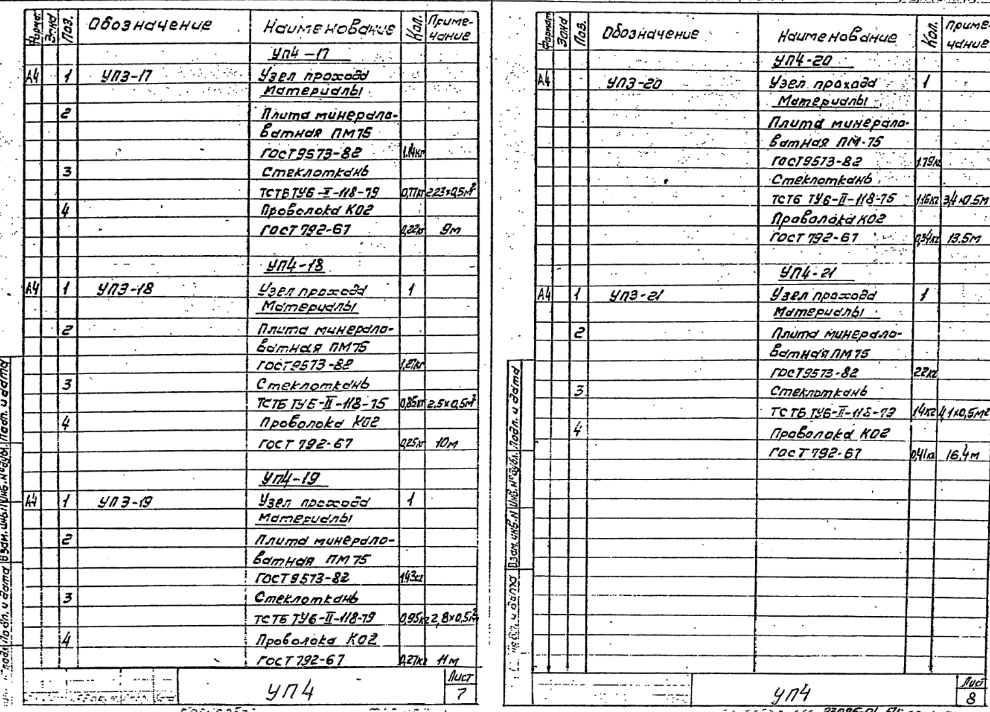 Формат Зона Поз. Обозначение Наименование Кол. Приме-
чание
УП4-17
А4 1 УПЗ-17 Узел прохода
Материалы
2 Плита минерало-
ватная ПМ75
ГОСТ9573-82 1,14кг
3 Стеклоткань
ТСТБ ТУ6-II-118-79 0,77кг 2,23x0,5м²
4 Проволока КО2
ГОСТ 792-67 0,22кг 9м
УП4-18
А4 1 УПЗ-18 Узел прохода 1
Материалы
2 Плита минерало-
ватная ПМ75
ГОСТ9573-82 1,27кг
3 Стеклоткань
ТСТБ ТУ6-II-118-75 0,85кг 2,5x0,5м²
4 Проволока КО2
ГОСТ 792-67 0,25кг 10м
УП4-19
А4 1 УПЗ-19 Узел прохода 1
Материалы
2 Плита минерало-
ватная ПМ75
ГОСТ9573-82 1,43кг
3 Стеклоткань
ТСТБ ТУ6-II-118-79 0,95кг 2,8x0,5м²
4 Проволока КО2
ГОСТ 792-67 0,27кг 11м
УП4 Лист
7
Формат Зона Поз. Обозначение Наименование Кол. Приме-
чание
УП4-20
А4 УПЗ-20 Узел прохода 1
Материалы
Плита минерало-
ватная ПМ-75
ГОСТ9573-82 1,79кг
Стеклоткань
ТСТБ ТУ6-II-118-75 1,16кг 3,4x0,5м
Проволока КО2
ГОСТ 792-67 0,34кг 13.5м
УП4-21
А4 1 УПЗ-21 Узел прохода 1
Материалы
2 Плита минерало-
ватная ПМ75
ГОСТ9573-82 2,2кг
3 Стеклоткань
ТСТБ ТУ6-II-118-79 1,4кг 4,1x0,5м²
4 Проволока КО2
ГОСТ 792-67 0,41кг 16,4м
УП4 Лист
8
Взам. инв. N Инв. N дубл. Подп. и дата